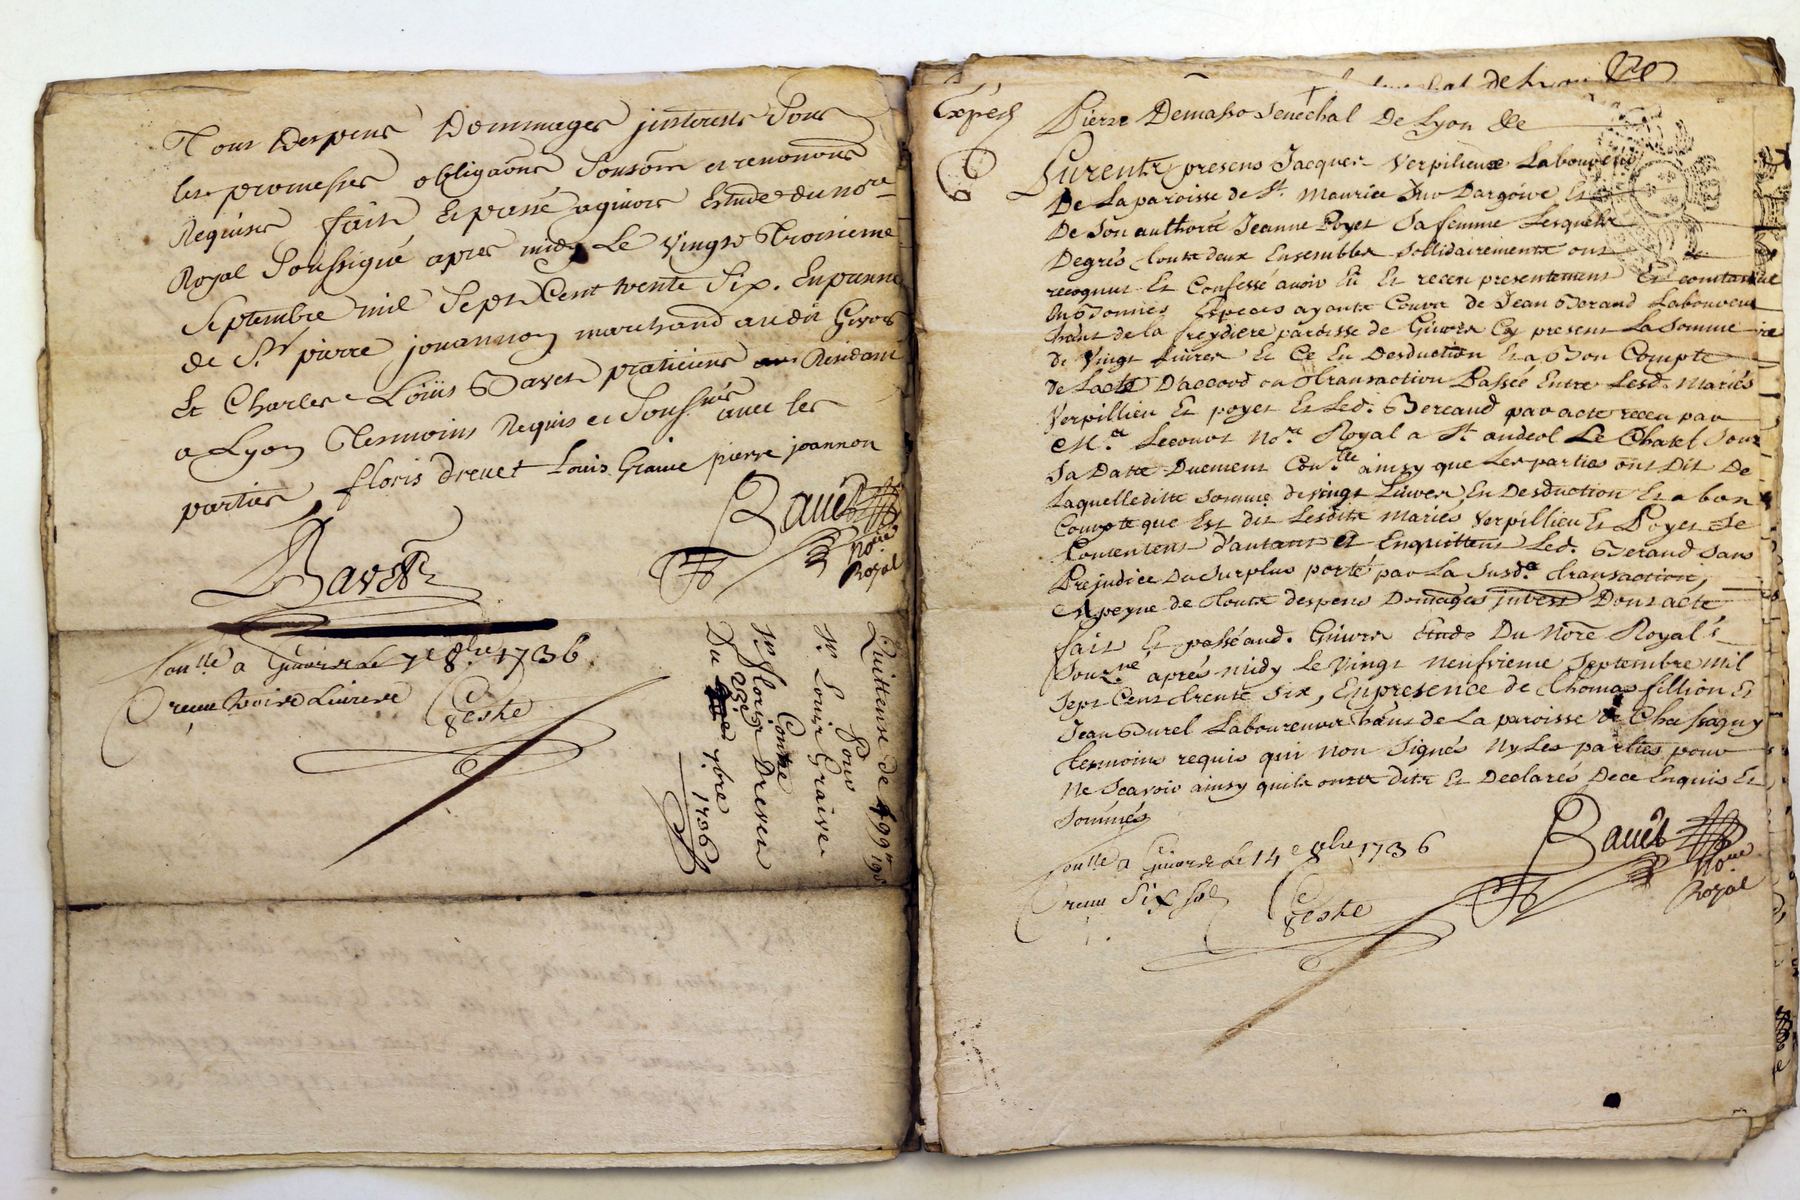 Tous despens Dommages jnterests Sous
les promesses obligaōns Soumōns et renonons
Requises fait Et passé a givors Estude du nore
Royal Soussigné apres midy Le vingt Troisieme
Septembre mil Sept Cent trente Six. En presance
de Sr pierre jouannon marchand audit Givors
Et Charles Loüis Bavet praticiens Residant
a Lyon Tesmoins Requis et Soussnés avec les
parties, floris drevet Louis Graive pierre joannon
Bavet
Bavet
Nore
Royal
Conlle a Givors Le 7e 8bre 1736
receu trois Livres
Ceste
Quittense de 199# 19s
Pour
Sr. Louis Graive
Contre
Sr. Floris Dreven
Du 23e 7bre 1736
Expéd
Pierre Demasso Senechal De Lyon &e
Furents presens Jacques Verpilieux Laboureur
De La paroisse de St. Maurice Sur Dargoire Et
De Son authorité Jeanne Poyet Sa femme Lesquels
Degrés touts deux Ensembles Sollidairements ont
recognus Et Confessé avoir Eu Et receu presentement Et comtant
En bonnes Especes ayants Cours de Jean Berand Laboureur
habt de la freydiere paroisse de Givors Cy present La Somme
de Vingt Livres Et Ce En Desduction Et a Bon Compte
de Lacte D'accord ou transaction Passée Entre Lesd. Mariés
Verpillieu Et poyet Et Led. Berand par acte receu par
Me. Lecourt Nore. Royal a St andeol Le Chatel Sous
Sa Datte Duement Conlle ainsy que Les parties ont Dit De
Laquelleditte Somme de vingt Livres En Desduction Et a bon
Compte que Est dit Lesdits Mariés Verpillieu Et Poyet Se
Contentens d'autant et Enquittens Led. Berand Sans
Prejudice Du Surplus porté par La Susde. transaction,
A peyne de touts despens Domages jnterst Dont acte
fait Et passé aud. Givors Etude Du Nore Royal
Sousné. après midy Le Vingt neufvieme Septembre mil
Sept Cent trente Six, En presence de Thomas fillion Et
Jean Burel Laboureurs habts de La paroisse de Chassagny
temoins requis qui non Signés Ny Les parties pour
Ne Scavoir ainsy quils onts dits Et Declarés De ce Enquis Et
Sommés
Bavet
Nore
Royal
Conlle a Givors Le 14e 8bre 1736
receu Six Sols
Ceste